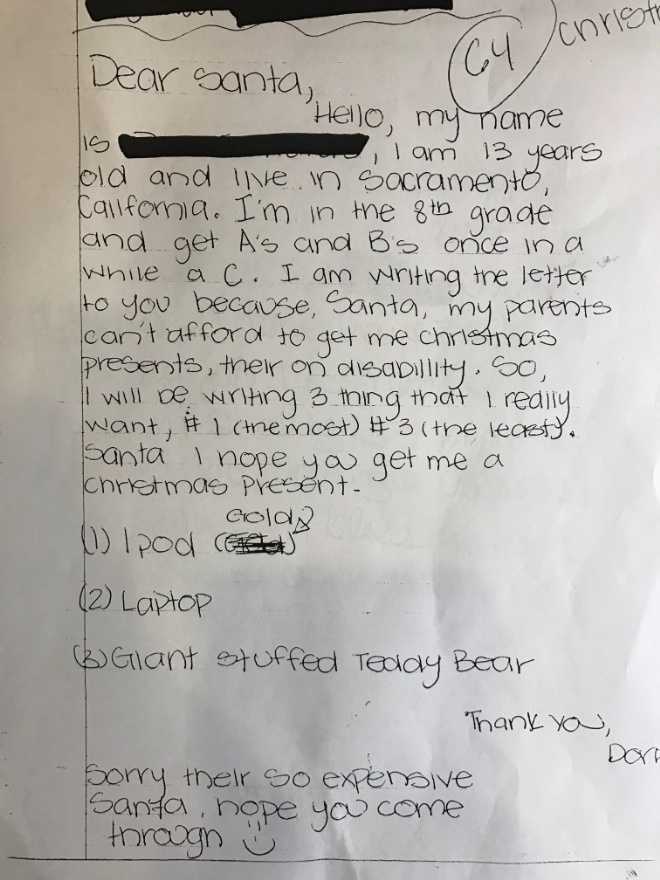 64
Dear Santa,
Hello, my name
is
, I am 13 years
old and live in Sacramento,
California. I'm in the 8th grade
and get A's and B's once in a
while a C. I am writing the letter
to you because, Santa, my parents
can't afford to get me christmas
presents, their on disabillity. So,
I will be writing 3 thing that I really
want, #1 (the most) #3 (the least).
Santa I hope you get me a
christmas present.
Gold
(1) Ipod
(2) Laptop
(3) Giant stuffed Teddy Bear
Thank you,
Sorry their so expensive
Santa, hope you come
through